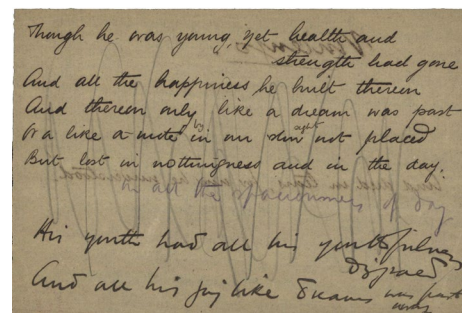 Though he was young, yet health and
strength had gone
And all the happiness he built therein
And thereon only like a dream was past
Or a like a mote in our dim sight not placed
But lost in nothingness and in the day.
in all the spaciousness of day
His youth had all his youthfulness
And all his joy like dreams was past
away